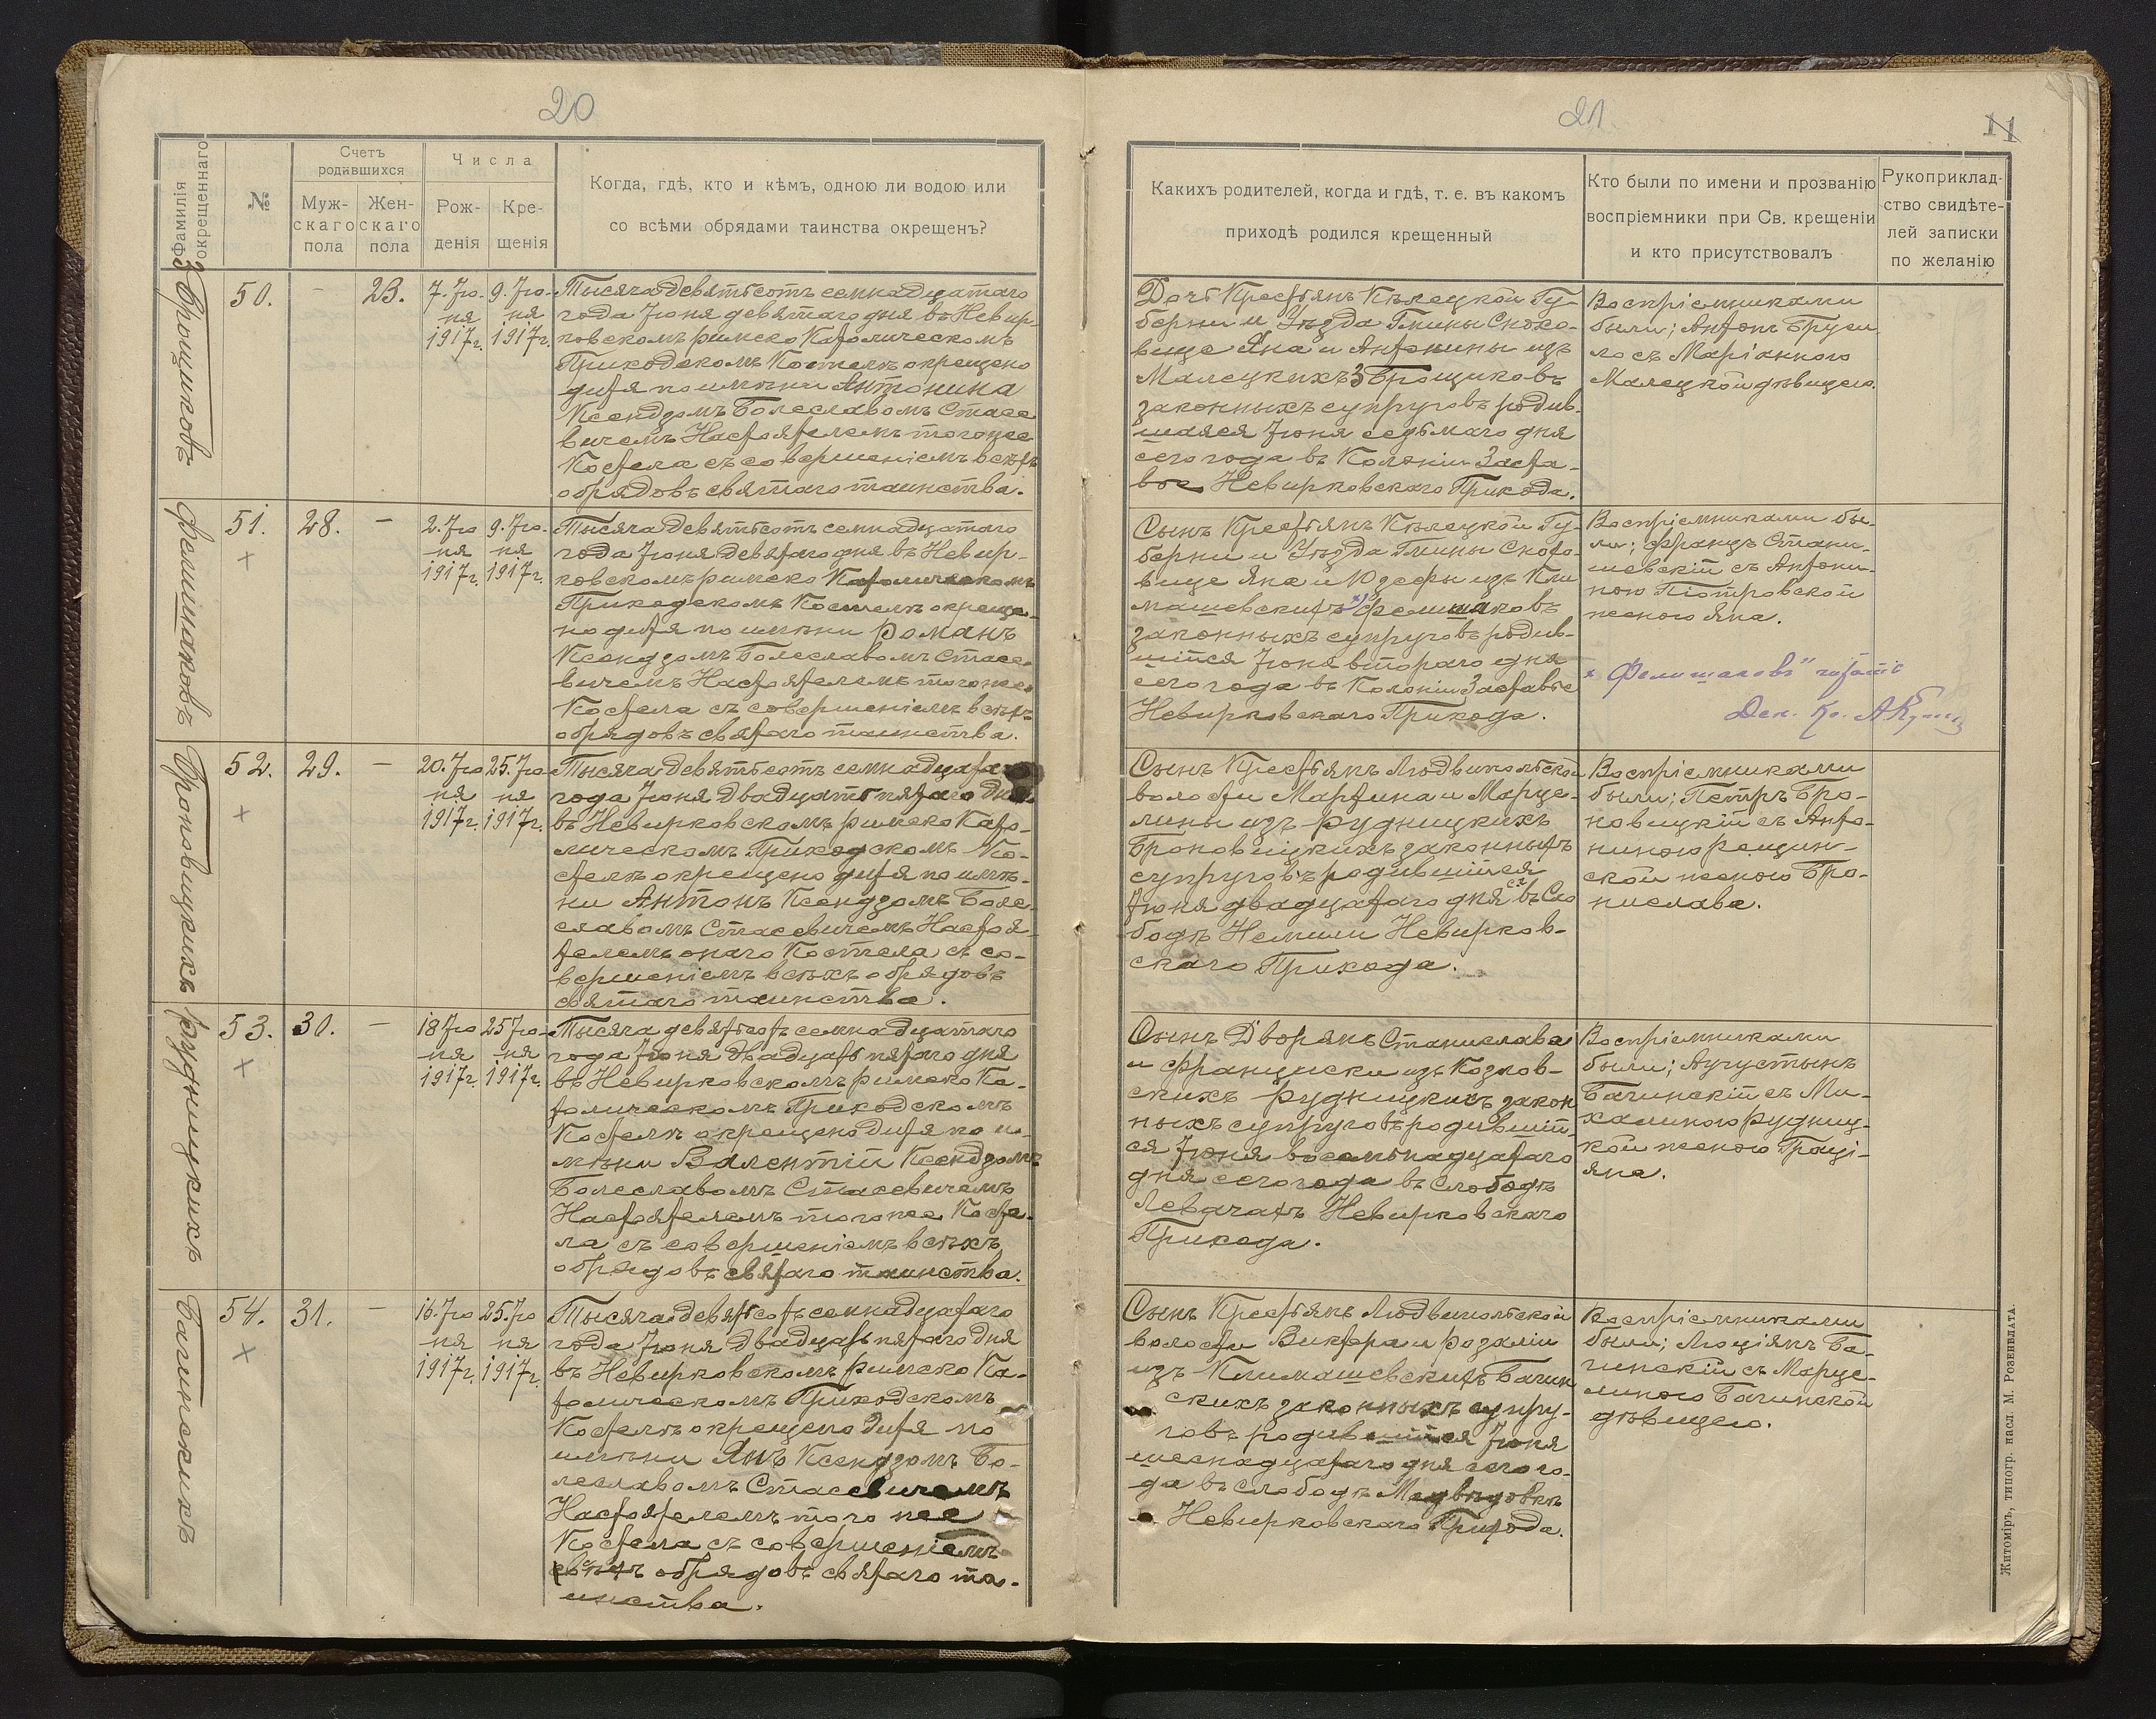 20
Фамилія окрещеннаго
№
Счетъ родившихся
Мужскаго пола
Женскаго пола
Числа
Рожденія
Крещенія
Когда, гдѣ, кто и кѣмъ, одною ли водою или
со всѣми обрядами таинства окрещенъ?
50.
-
23.
7. Іюня 1917 г.
9. Іюня 1917 г.
Тысяча девятьсотъ семнадцатаго
года Іюня девятаго дня въ Невир-
ковскомъ римско Католическомъ
Приходскомъ Костелѣ окрещено
дитя по имени Антонина
Ксендзомъ Болеславомъ Стасе-
вичемъ Настоятелемъ тогоже
Костела съ совершеніемъ всѣхъ
обрядовъ святаго таинства.
Фелишаковъ
51.
+
28.
-
2. Іюня 1917 г.
9. Іюня 1917 г.
Тысяча девятьсотъ семнадцатаго
года Іюня девятаго дня въ Невир-
ковскомъ римско Католическомъ
Приходскомъ Костелѣ окреще-
но дитя по имени Романъ
Ксендзомъ Болеславомъ Стасе-
вичемъ Настоятелемъ тогоже
Костела съ совершеніемъ всѣхъ
обрядовъ святаго таинства.
Броновицкихъ
52.
+
29.
-
20. Іюня 1917 г.
25. Іюня 1917 г.
Тысяча девятьсотъ семнадцата
года Іюня двадцать пятаго дня
въ Невирковскомъ римско Като-
лическомъ Приходскомъ Ко-
стелѣ окрещено дитя по имѣ-
ни Антонъ Ксендзомъ Боле-
славомъ Стасевичемъ Настоя-
телемъ онаго Костела съ со-
вершеніемъ всѣхъ обрядовъ
святаго таинства.
Рудницкихъ
53.
+
30.
-
18 Іюня 1917 г.
25 Іюня 1917 г.
Тысяча девятьсотъ семнадцатаго
года Іюня двадцать пятаго дня
въ Невирковскомъ римско Ка-
толическомъ Приходскомъ
Костелѣ окрещено дитя по и-
мѣни Валентій Ксендзомъ
Болеславомъ Стасевичемъ
Настоятелемъ тогоже Косте-
ла съ совершеніемъ всѣхъ
обрядовъ святаго таинства.
Багинскихъ
54.
+
31.
-
16. Іюня 1917 г.
25. Іюня 1917 г.
Тысяча девятьсотъ семнадцатаго
года Іюня двадцать пятаго дня
въ Невирковскомъ римско Ка-
толическомъ Приходскомъ
Костелѣ окрещено дитя по
имѣни Янъ Ксендзомъ Бо-
леславомъ Стасевичемъ
Настоятелемъ того же
Костела съ совершеніемъ
обрядовъ святаго та-
инства.
21.
11
Какихъ родителей, когда и гдѣ, т. е. въ какомъ
приходѣ родился крещенный
Кто были по имени и прозванію
воспріемники при Св. крещеніи
и кто присутствовалъ
Рукоприклад-
ство свидѣте-
лей записки
по желанію
Дочь Крестьянъ Кѣлецкой Гу-
берни и Уѣзда Гмины
Яна и Антонины изъ
Малецкихъ
законныхъ супруговъ родив-
шаяся Іюня седьмаго дня
сего года въ Колоніи Заста-
вье Невирковскаго Прихода.
Воспріемниками
были; Антонъ
съ Маріанною
Малецкой дѣвицею.
Сынъ Крестьянъ Кѣлецкой Гу-
берни и Уѣзда Гмины
Яна и Юзефы изъ Кли
машевскихъ x) Фелишаковъ
законныхъ супруговъ родив-
шійся Іюня втораго дня
сего года въ Колоніи Заставье
Невирковскаго Прихода.
Воспріемниками бы-
ли; Францъ Стани-
шевскій съ Антони-
ною Піотровской
женою Яна.
x Фелишаковъ"
Дек. Кс.
Сынъ Крестьянъ Людвипольской
волости Мартина и Марце-
лины изъ Рудницкихъ
Броновицкихъ законныхъ
супруговъ родившійся
Іюня двадцатаго дня с.г. въ Сло
бодѣ Немили Невирков-
скаго Прихода.
Воспріемниками
были; Петръ Бро-
новицкій съ Анто-
ниною Рещин-
ской женою Бро-
нислава.
Сынъ Дворянъ Станислава
и Франциски изъ Козлов-
скихъ Рудницкихъ закон
ныхъ супруговъ родившій-
ся Іюня восемьнадцатаго
дня сего года въ слободѣ
Левачахъ Невирковскаго
Прихода.
Воспріемниками
были; Аугустынъ
Багинскій съ Ми-
халиною Рудниц-
кой женою Граці-
яна.
Сынъ Крестьянъ Людвипольской
волости Виктора и Розаліи
изъ Климашевскихъ Багин
скихъ законныхъ супру-
говъ родившійся Іюня
шеснадцатаго дня сего го-
да въ слободѣ Медвѣдовкѣ
Невирковскаго Прихода.
Воспріемниками
были; Люціянъ Ба-
гинскій съ Марце-
линою Багинской
дѣвицею.
Житоміръ, типогр. насл. М. Розенблата.